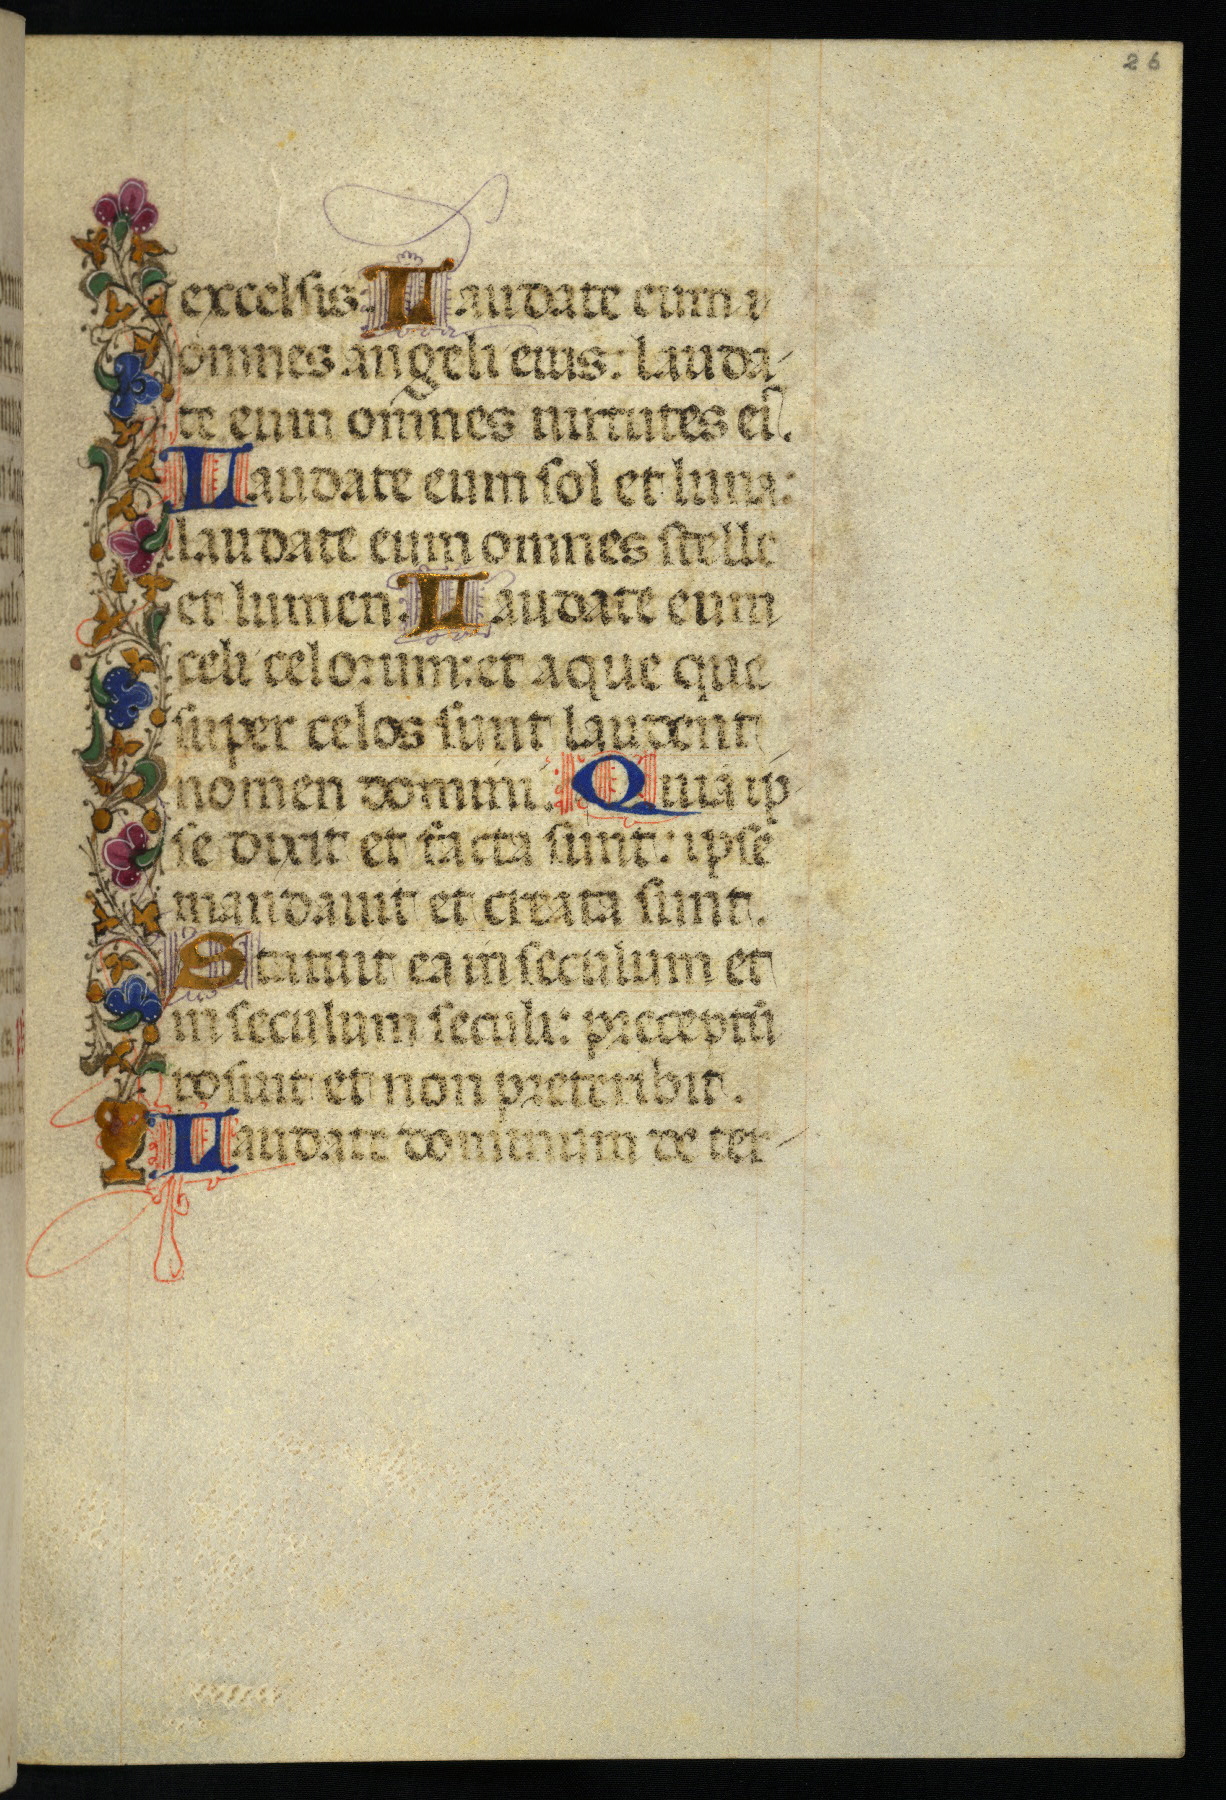 26
excelsis. Laudate eum
omnes angeli eius: lauda-
te eum omnes uirtutes ei⁹.
Laudate eum sol et luna:
laudate eum omnes stelle
et lumen. Laudate eum
celi celorum: et aque que
super celos sunt laudent
nomen domini. Quia ip
se dixit et facta sunt: ipse
mandauit et creata sunt.
Statuit ea in seculum et
in seculum seculi: preceptū
posuit et non preteribit.
Laudate dominum de ter-